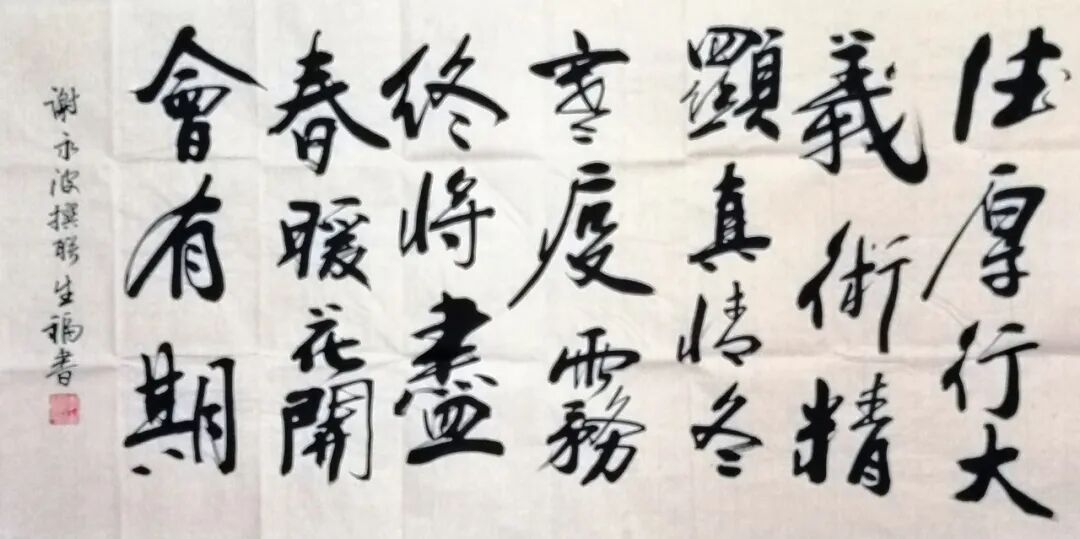 德厚行大
義術精
顯真情冬
寒疫霧
終將盡
春暖花開
會有期
谢永波撰联生福書